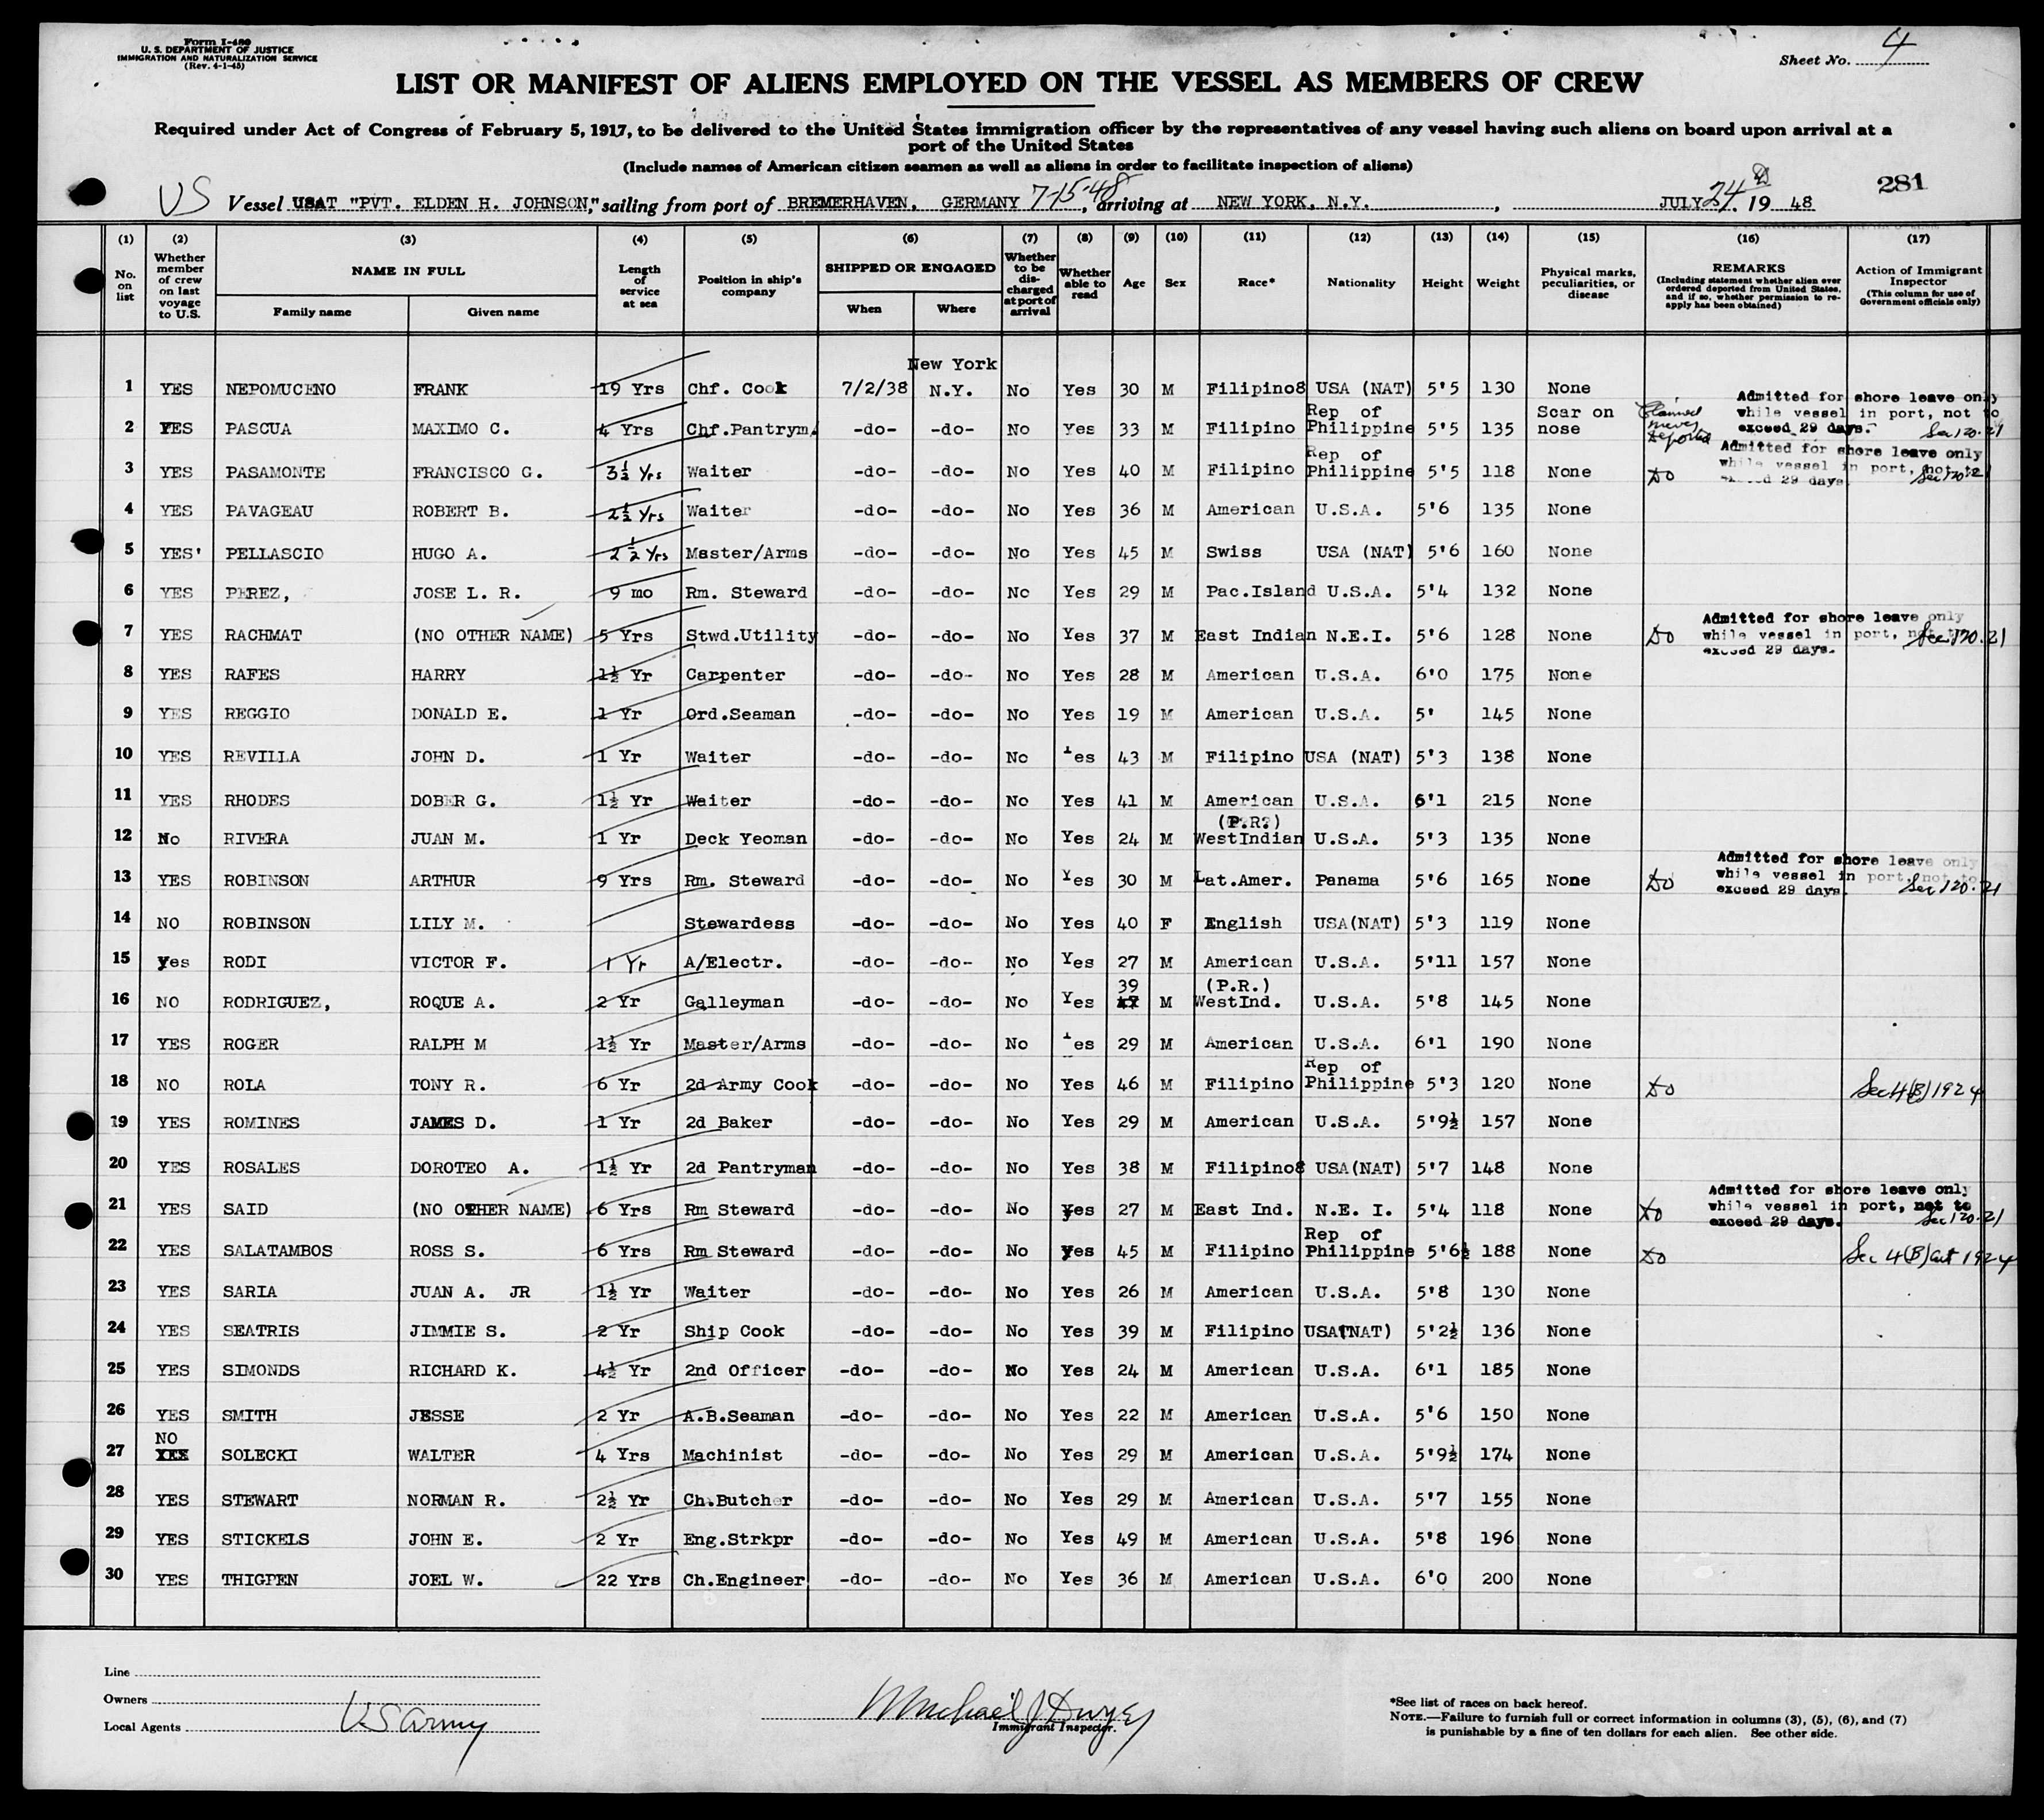 Form I-489
U. S. DEPARTMENT OF JUSTICE
IMMIGRATION AND NATURALIZATION SERVICE
(Rev. 4-1-45)
Sheet No. 4
LIST OR MANIFEST OF ALIENS EMPLOYED ON THE VESSEL AS MEMBERS OF CREW
Required under Act of Congress of February 5, 1917, to be delivered to the United States immigration officer by the representatives of any vessel having such aliens on board upon arrival at a
port of the United States
(Include names of American citizen seamen as well as aliens in order to facilitate inspection of aliens)
281
US Vessel USAT "PVT. ELDEN H. JOHNSON," sailing from port of BREMERHAVEN, GERMANY 7-15-48, arriving at NEW YORK, N.Y., JULY 24, 19 48
(1) (2) (3) (4) (5) (6) (7) (8) (9) (10) (11) (12) (13) (14) (15) (16) (17)
No. on list
Whether member of crew on last voyage to U.S.
NAME IN FULL
Family name Given name
Length of service at sea
Position in ship's company
SHIPPED OR ENGAGED
When Where
Whether to be discharged at port of arrival
Whether able to read
Age Sex Race* Nationality Height Weight
Physical marks, peculiarities, or disease
REMARKS
(Including statement whether alien ever ordered deported from United States, and if so, whether permission to re-apply has been obtained)
Action of Immigrant Inspector
(This column for use of Government officials only)
New York
1 YES NEPOMUCENO FRANK 19 Yrs Chf. Cook 7/2/38 N.Y. No Yes 30 M Filipino8 USA (NAT) 5'5 130 None
2 YES PASCUA MAXIMO C. 4 Yrs Chf.Pantrym. -do- -do- No Yes 33 M Filipino Rep of Philippine 5'5 135 Scar on nose Claimed never deported Admitted for shore leave only while vessel in port, not to exceed 29 days. Sec 120.21
3 YES PASAMONTE FRANCISCO G. 3½ Yrs Waiter -do- -do- No Yes 40 M Filipino Rep of Philippine 5'5 118 None Do Admitted for shore leave only while vessel in port, not to exceed 29 days. Sec 120.21
4 YES PAVAGEAU ROBERT B. 2½ Yrs Waiter -do- -do- No Yes 36 M American U.S.A. 5'6 135 None
5 YES' PELLASCIO HUGO A. 2½ Yrs Master/Arms -do- -do- No Yes 45 M Swiss USA (NAT) 5'6 160 None
6 YES PEREZ, JOSE L. R. 9 mo Rm. Steward -do- -do- No Yes 29 M Pac.Island U.S.A. 5'4 132 None
7 YES RACHMAT (NO OTHER NAME) 5 Yrs Stwd.Utility -do- -do- No Yes 37 M East Indian N.E.I. 5'6 128 None Do Admitted for shore leave only while vessel in port, not to exceed 29 days. Sec 120.21
8 YES RAFES HARRY 1½ Yr Carpenter -do- -do- No Yes 28 M American U.S.A. 6'0 175 None
9 YES REGGIO DONALD E. 1 Yr Ord.Seaman -do- -do- No Yes 19 M American U.S.A. 5' 145 None
10 YES REVILLA JOHN D. 1 Yr Waiter -do- -do- No Yes 43 M Filipino USA (NAT) 5'3 138 None
11 YES RHODES DOBER G. 1½ Yr Waiter -do- -do- No Yes 41 M American U.S.A. 6'1 215 None
12 No RIVERA JUAN M. 1 Yr Deck Yeoman -do- -do- No Yes 24 M (P.R.) WestIndian U.S.A. 5'3 135 None
13 YES ROBINSON ARTHUR 9 Yrs Rm. Steward -do- -do- No Yes 30 M Lat.Amer. Panama 5'6 165 None Do Admitted for shore leave only while vessel in port, not to exceed 29 days. Sec 120.21
14 NO ROBINSON LILY M. Stewardess -do- -do- No Yes 40 F English USA(NAT) 5'3 119 None
15 yes RODI VICTOR F. 1 Yr A/Electr. -do- -do- No Yes 27 M American U.S.A. 5'11 157 None
16 NO RODRIGUEZ, ROQUE A. 2 Yr Galleyman -do- -do- No Yes 39 M (P.R.) WestInd. U.S.A. 5'8 145 None
17 YES ROGER RALPH M 1½ Yr Master/Arms -do- -do- No Yes 29 M American U.S.A. 6'1 190 None
18 NO ROLA TONY R. 6 Yr 2d Army Cook -do- -do- No Yes 46 M Filipino Rep of Philippine 5'3 120 None Do Sec 4(B) 1924
19 YES ROMINES JAMES D. 1 Yr 2d Baker -do- -do- No Yes 29 M American U.S.A. 5'9½ 157 None
20 YES ROSALES DOROTEO A. 1½ Yr 2d Pantryman -do- -do- No Yes 38 M Filipino8 USA(NAT) 5'7 148 None
21 YES SAID (NO OTHER NAME) 6 Yrs Rm Steward -do- -do- No yes 27 M East Ind. N.E. I. 5'4 118 None Do Admitted for shore leave only while vessel in port, not to exceed 29 days. Sec 120.21
22 YES SALATAMBOS ROSS S. 6 Yrs Rm Steward -do- -do- No yes 45 M Filipino Rep of Philippine 5'6½ 188 None Do Sec 4(B) act 1924
23 YES SARIA JUAN A. JR 1½ Yr Waiter -do- -do- No Yes 26 M American U.S.A. 5'8 130 None
24 YES SEATRIS JIMMIE S. 2 Yr Ship Cook -do- -do- No Yes 39 M Filipino USA(NAT) 5'2½ 136 None
25 YES SIMONDS RICHARD K. 4½ Yr 2nd Officer -do- -do- No Yes 24 M American U.S.A. 6'1 185 None
26 YES SMITH JESSE 2 Yr A.B.Seaman -do- -do- No Yes 22 M American U.S.A. 5'6 150 None
27 NO SOLECKI WALTER 4 Yrs Machinist -do- -do- No Yes 29 M American U.S.A. 5'9½ 174 None
28 YES STEWART NORMAN R. 2½ Yr Ch.Butcher -do- -do- No Yes 29 M American U.S.A. 5'7 155 None
29 YES STICKELS JOHN E. 2 Yr Eng.Strkpr -do- -do- No Yes 49 M American U.S.A. 5'8 196 None
30 YES THIGPEN JOEL W. 22 Yrs Ch.Engineer -do- -do- No Yes 36 M American U.S.A. 6'0 200 None
Line
Owners
Local Agents US Army
Michael J Dwyer
Immigrant Inspector.
*See list of races on back hereof.
NOTE.—Failure to furnish full or correct information in columns (3), (5), (6), and (7)
is punishable by a fine of ten dollars for each alien. See other side.